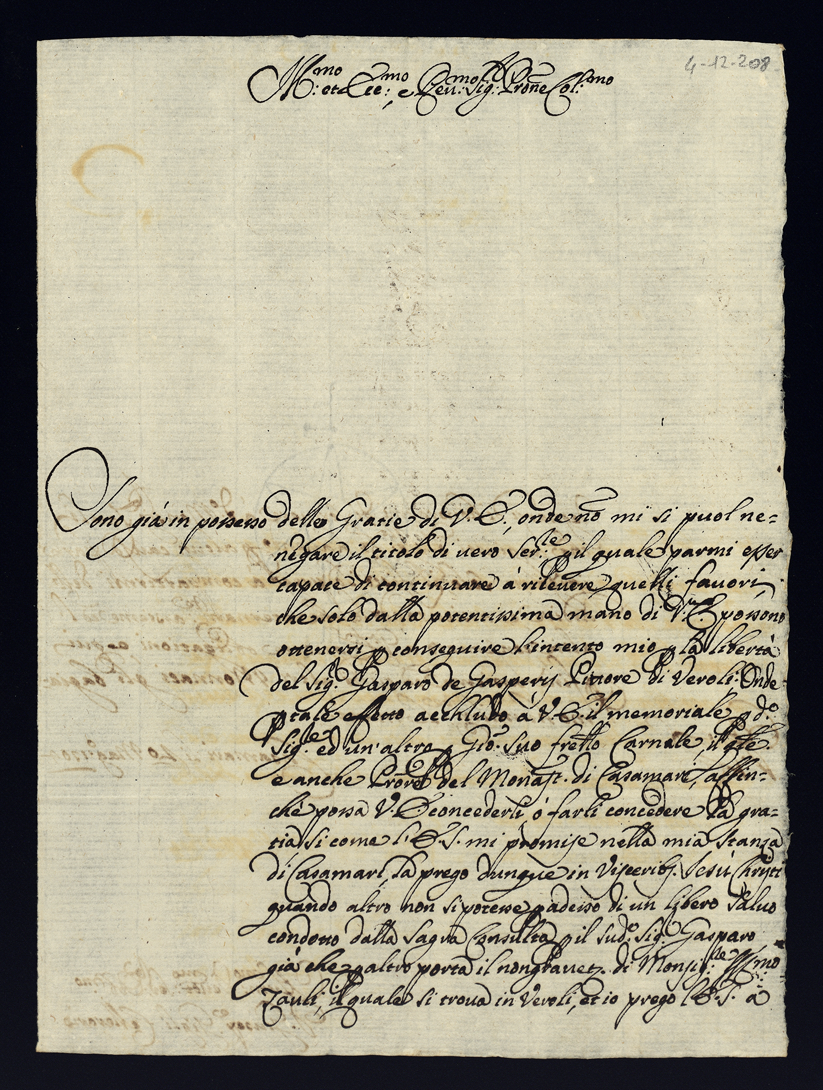 4-12-208
Ill:mo et Ecc:mo, e Rev:mo Sig: Prõne Col:mo
Sono già in possesso delle Gratie di V.E., onde nõ mi si puol ne=
negare il titolo di vero Ser:le, il quale parmi esser
capace di continuare à ricevere quelli favori,
che solo dalla potentissima mano di V.E possono
ottenersi p conseguire l'intento mio p la libertà
del Sig: Gasparo de Gasperij Pittore di Veroli. Onde
p tale effetto acchiudo à V.E. il memoriale p d:o
Sig:le ed un'altro p Gio: suo frẽllo Carnale il qle
e anche Prõre del Monast: di Casamari, affin=
chè possa V.E concederli, ò farli concedere la gra=
tia si come l'E.S. mi promise nella mia stanza
di Casamari, la prego dunque in Visceribs Jesù Chrysti
quando altro non si potesse p adesso di un libero Salvo
condotto dalla Sagra Consulta p il sud:o Sig: Gasparo
già che p altro porta il nongravetr di Monsig:le Ill:mo
Zauli, il quale si trova in Veroli, et io prego l'E.S. à